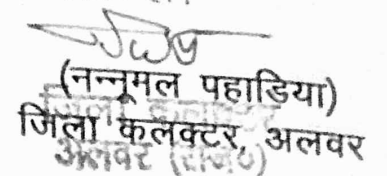 (नन्नूमल पहाडिया)
जिला कलक्टर, अलवर
अलवर (राज०)